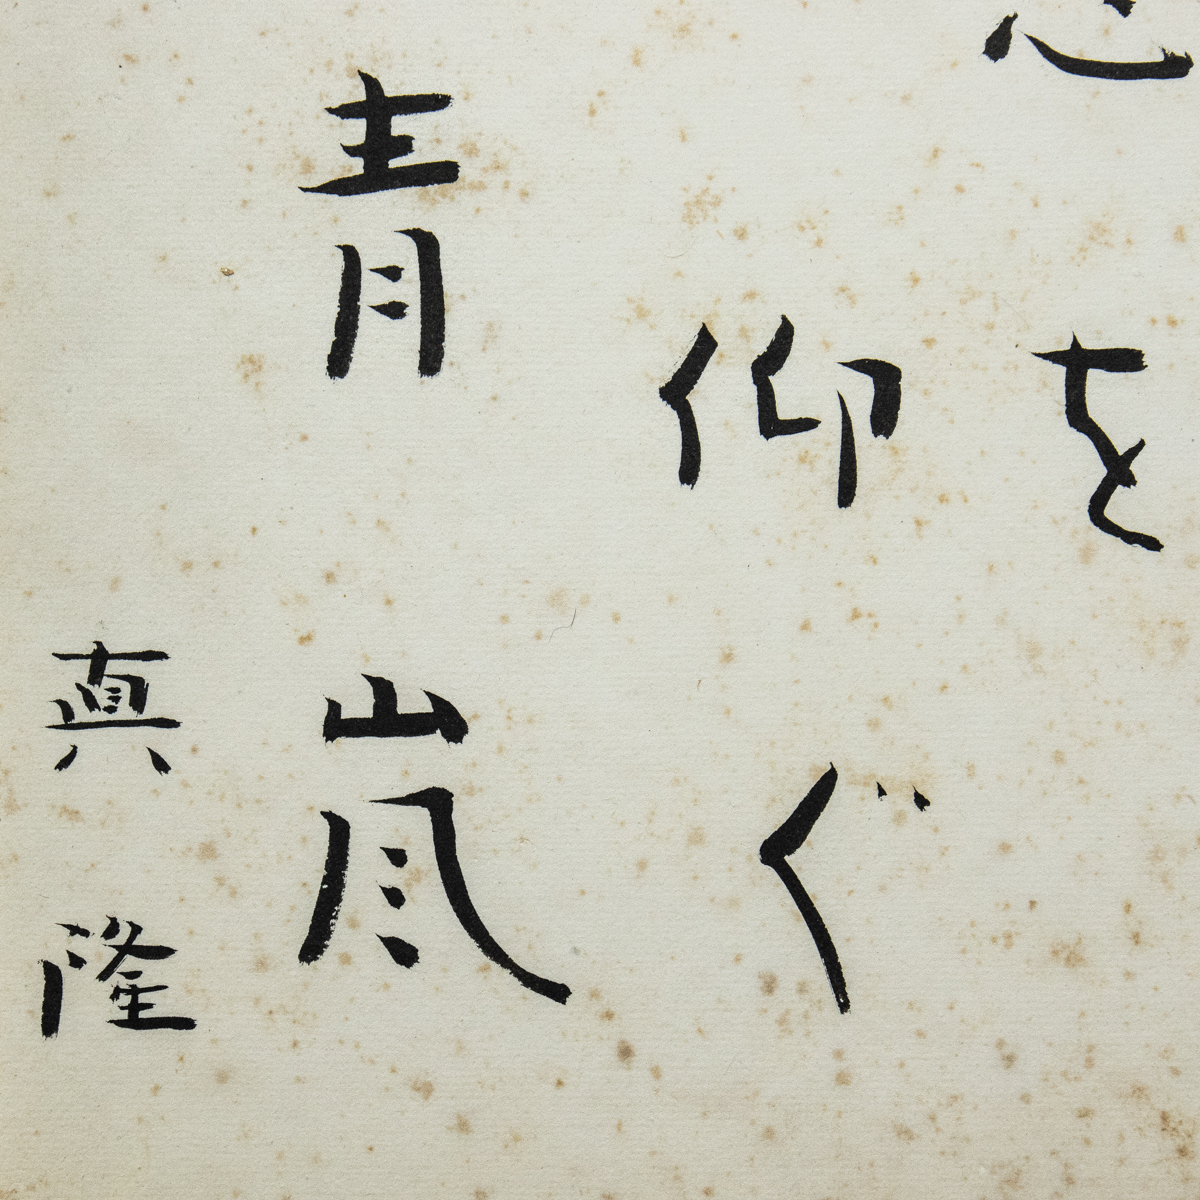 を
仰ぐ
青嵐
真隆